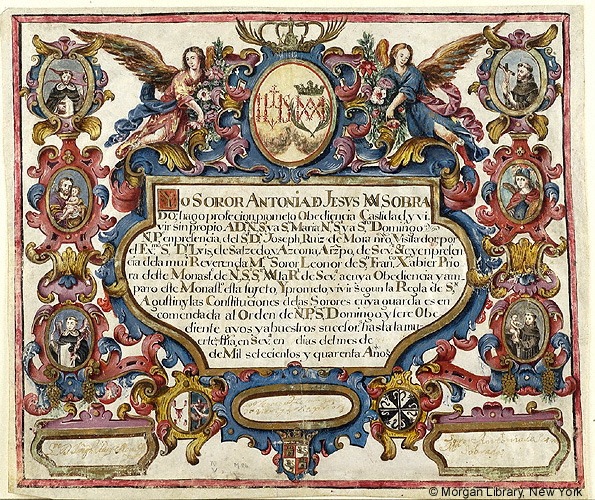 YO SOROR ANTONIA Ð JESVS MA SOBRA
DO, hago profecion, prometo Obediencia Castidad, y vi
vir sin propio A D. N. S. y a Sª. Maria Nª Sª y a Sto. Domingo
N. P. en presencia, del S. D. Joseph, Ruiz de Mora nro. Visitador, por
el E. S. D. Luis, de Salzedo, y Azcona, Arzpo, de Sevª. y en presen
cia de la mui Reverenda Me. Soror Leonor de Sn. Fran. Xabier Prio
ra deste Monast. de N. S. S. Me. la Rl. de Sevª. a cuya Obediencia y am
paro este Monast. esta sujeto, Y prometo vivir segun la Regla de Sn.
Agustin y las Constituciones de las Sorores en ya guarda es en
comendada al Orden de N. P. S. Domingo, y sere Obe
diente a vos y a buestros sucesor. hasta la mu
erte. ffha, en Sevª. en dias del mes de
de Mil selecientos y quarenta Años
© Morgan Library, New York